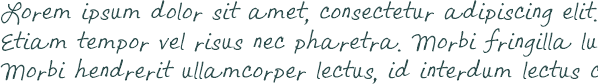 Lorem ipsum dolor sit amet, consectetur adipiscing elit.
Etiam tempor vel risus nec pharetra. Morbi fringilla lu
Morbi hendrerit ullamcorper lectus, id interdum lectus c